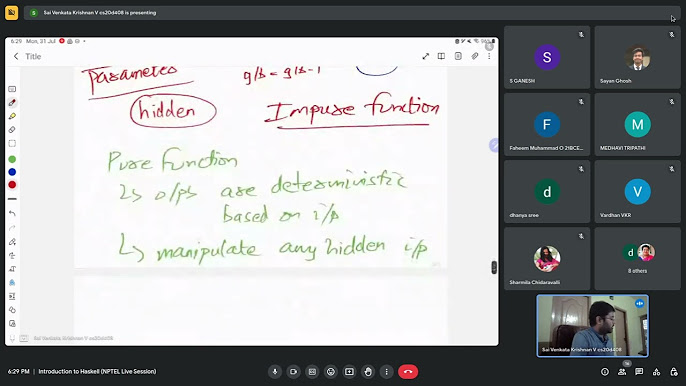 S Sai Venkata Krishnan V cs20d408 is presenting
6:29 Mon, 31 Jul
96%
Title
Parameter
glb = glb - 1
hidden
Impure function
Pure function
↳ o/ps are deterministic
based on i/p
↳ manipulate any hidden i/p
Sai Venkata Krishnan V cs20d408
S
S GANESH
Sayan Ghosh
F
Faheem Muhammad O 21BCE...
M
MEDHAVI TRIPATHI
d
dhanya sree
V
Vardhan VKR
Sharmila Chidaravalli
d
8 others
Sai Venkata Krishnan V cs20d408
6:29 PM | Introduction to Haskell (NPTEL Live Session)